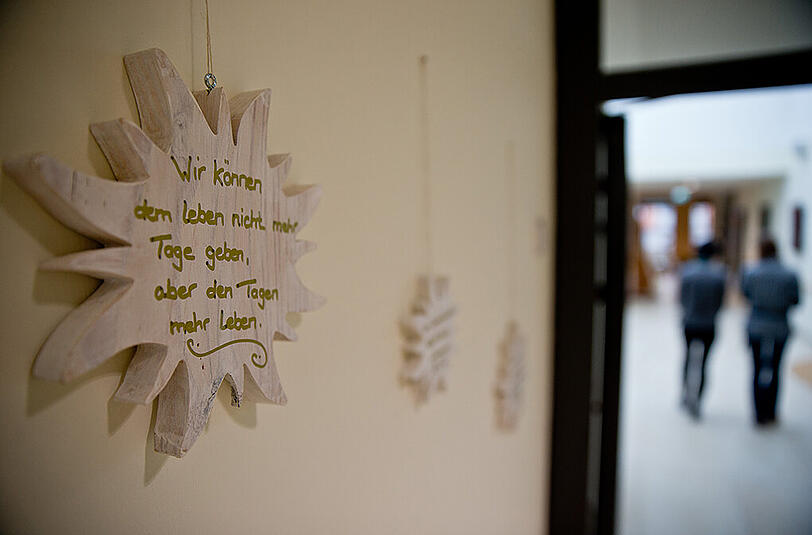 Wir können
dem leben nicht mehr
Tage geben,
aber den Tagen
mehr leben.